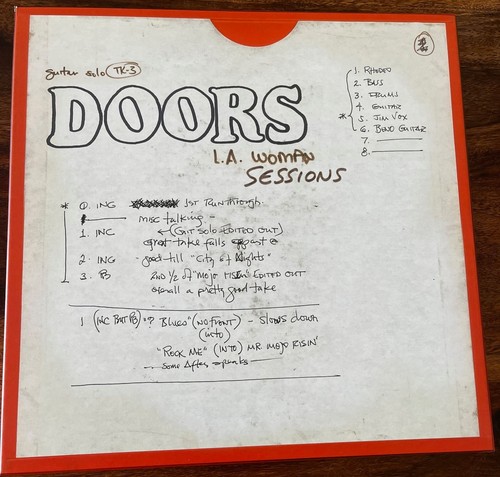 guitar solo TK-3
DOORS
L.A. WOMAN
SESSIONS
1. RHODEO
2. BASS
3. DRUMS
4. GUITAR
* 5. JIM VOX
6. BEND GUITAR
7.
8.
* 0. ING 1ST RUNTHROUGH.
misc talking -
1. INC ← (GIT SOLO EDITED OUT)
great take falls apart @
2. ING - good - till "City of Nights"
3. PB 2ND 1/2 of "MOJO RISIN" EDITED OUT
overall a pretty good take
1 (INC BUT PB) "? Blues" (NO FRONT) - Slows down
(into)
"ROCK ME" (INTO) MR MOJO RISIN'
- some After speaks